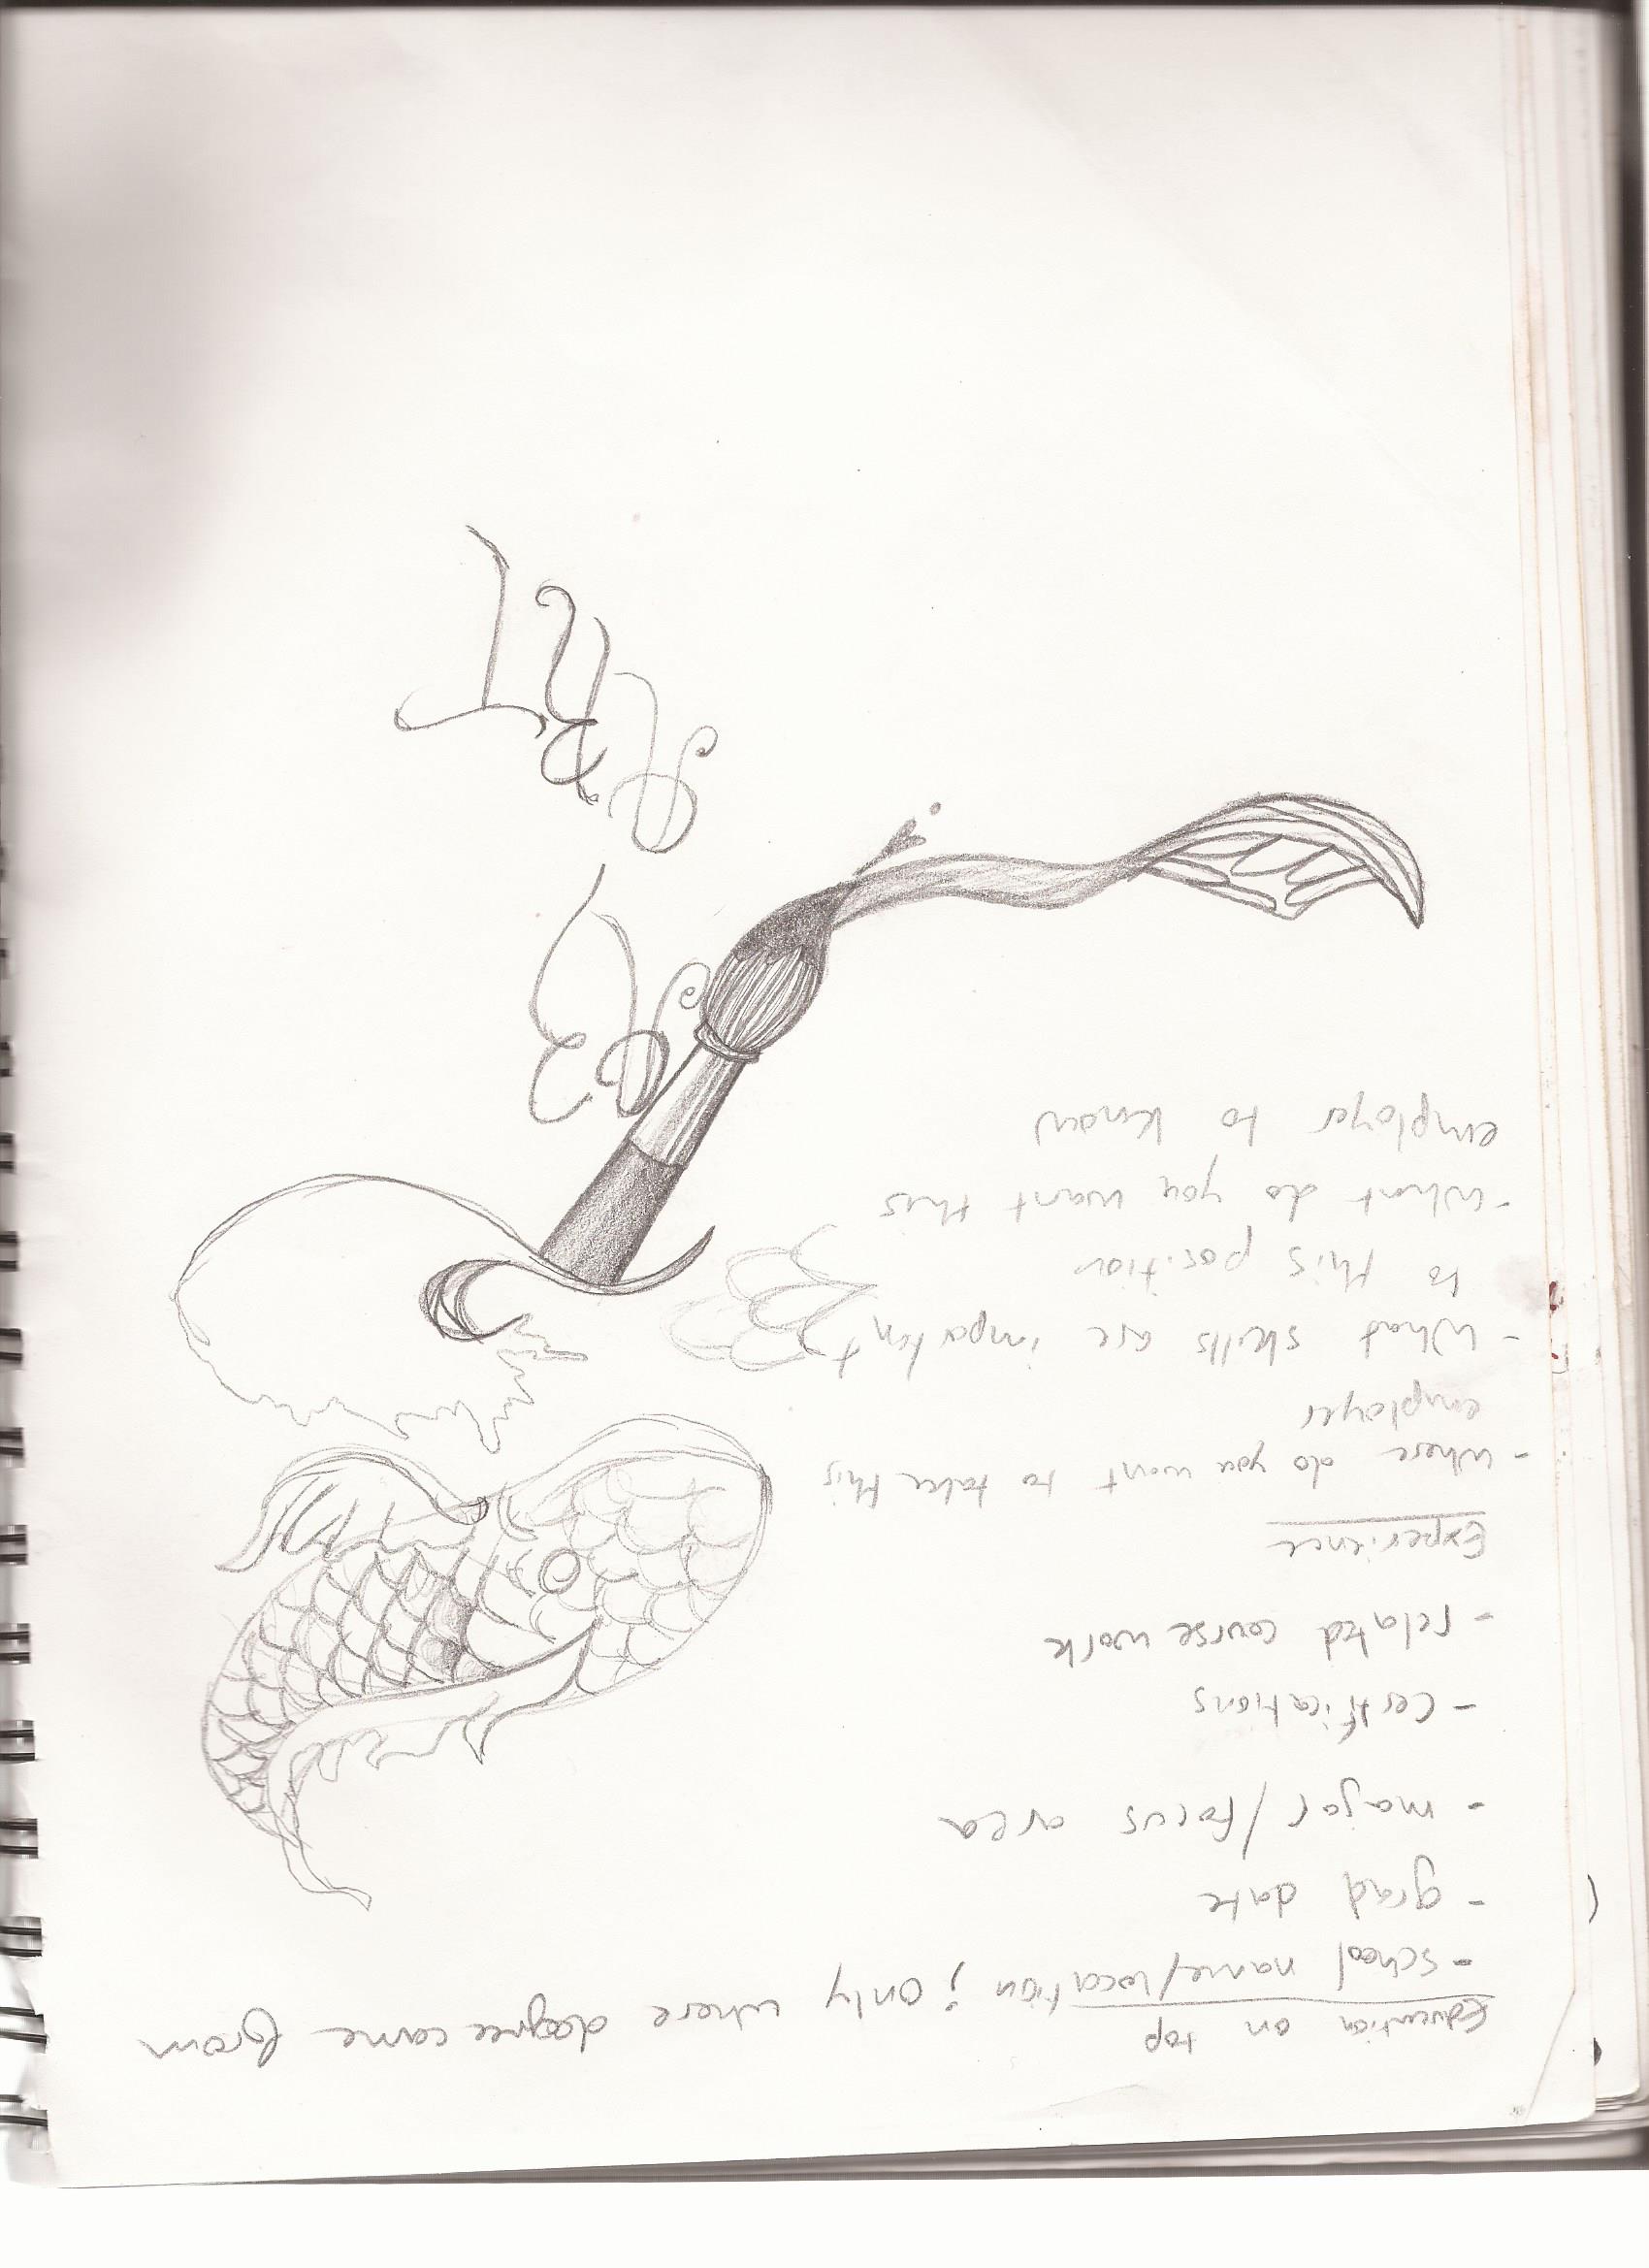 Education on top
- school name/location ; only where degree came from
- grad date
- major/focus area
- certifications
- related course work
Experience
- where do you want to take this
employer
- What skills are important
to this position
- What do you want this
employer to know
ART